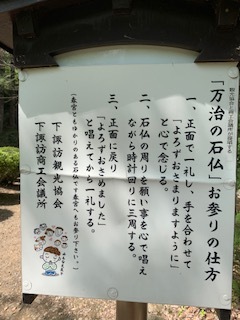 観光協会と商工会議所が推奨する
「万治の石仏」お参りの仕方
一、正面で一礼し、手を合わせて
「よろずおさまりますように」
と心で念じる。
二、石仏の周りを願い事を心で唱え
ながら時計回りに三周する。
三、正面に戻り
「よろずおさめました」
と唱えてから一礼する。
(春宮ともゆかりのある石仏です春宮へもお参り下さい。)
下諏訪観光協会
下諏訪商工会議所